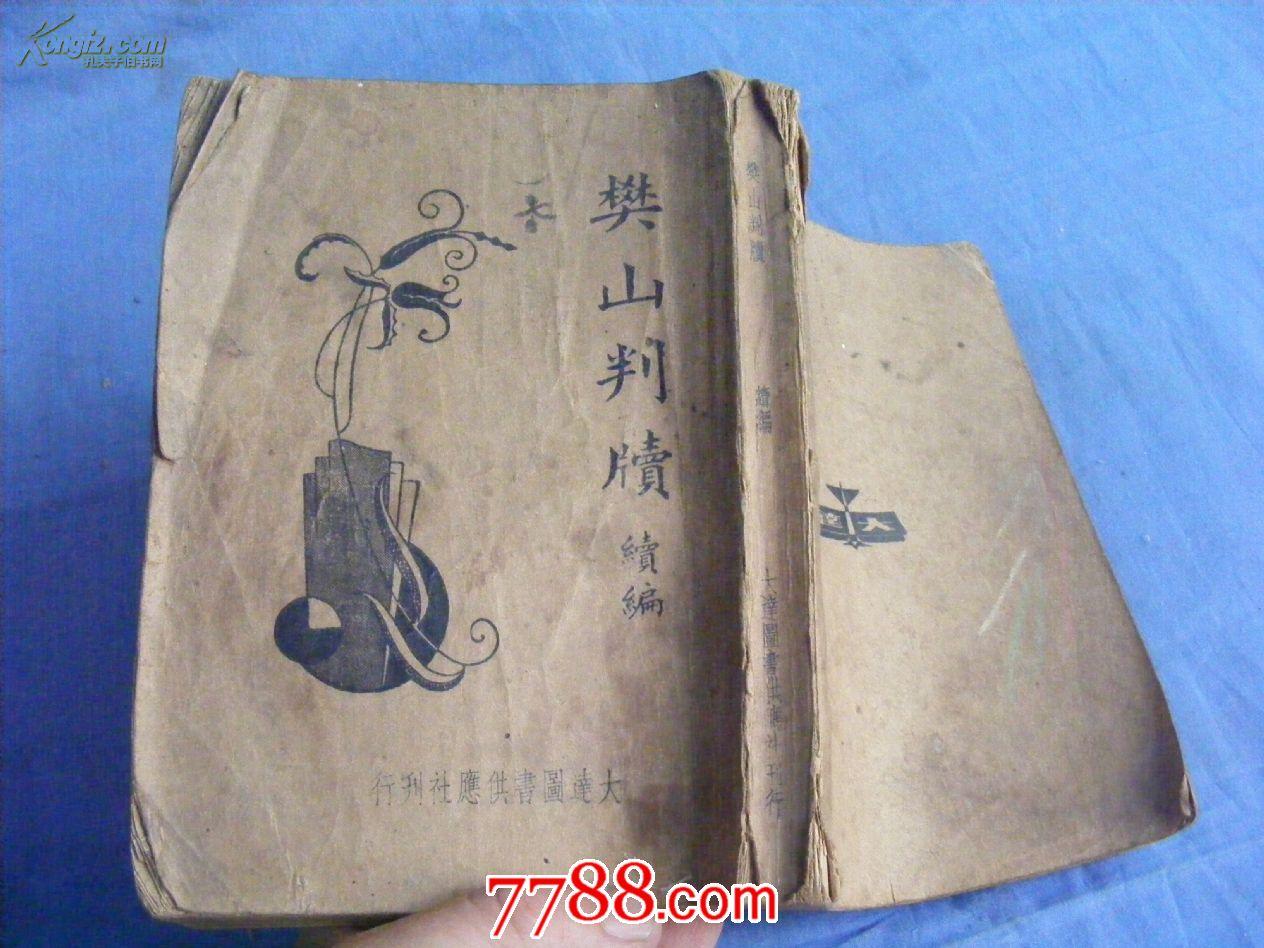 Kongfz.com
孔夫子旧书网
樊山判牘
續編
大達圖書供應社刊行
樊山判牘
續編
大達圖書供應社刊行
大達
7788.com